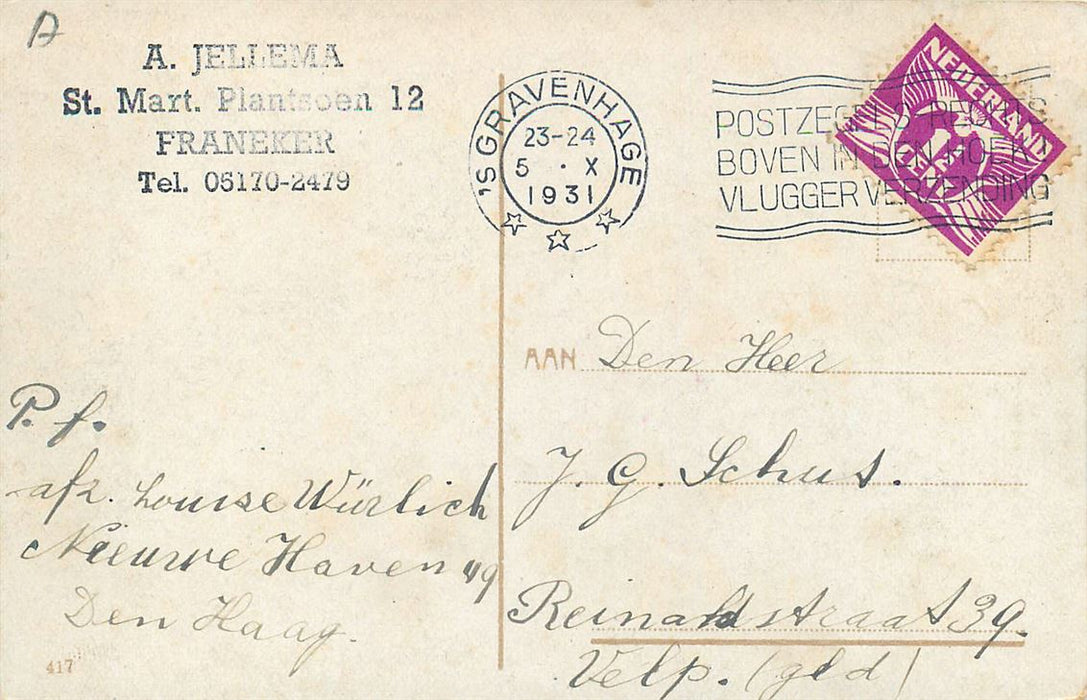 A
A. JELLEMA
St. Mart. Plantsoen 12
FRANEKER
Tel. 05170-2479
'S GRAVENHAGE
23-24
5 · X
1931
POSTZEGELS RECHTS
BOVEN IN DEN HOEK
VLUGGER VERZENDING
NEDERLAND
P. f.
afz. Louise Würlich
Nieuwe Haven 49
Den Haag.
417
AAN Den Heer
J. G. Schus.
Reinaldstraat 39.
Velp. (gld)